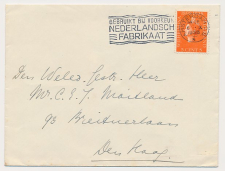 GEBRUIKT BIJ VOORKEUR
NEDERLANDSCH
FABRIKAAT
Den Weled. Gestr. Heer
Mr. C. E. J. Maitland
93 Breitnerlaan
Den Haag.